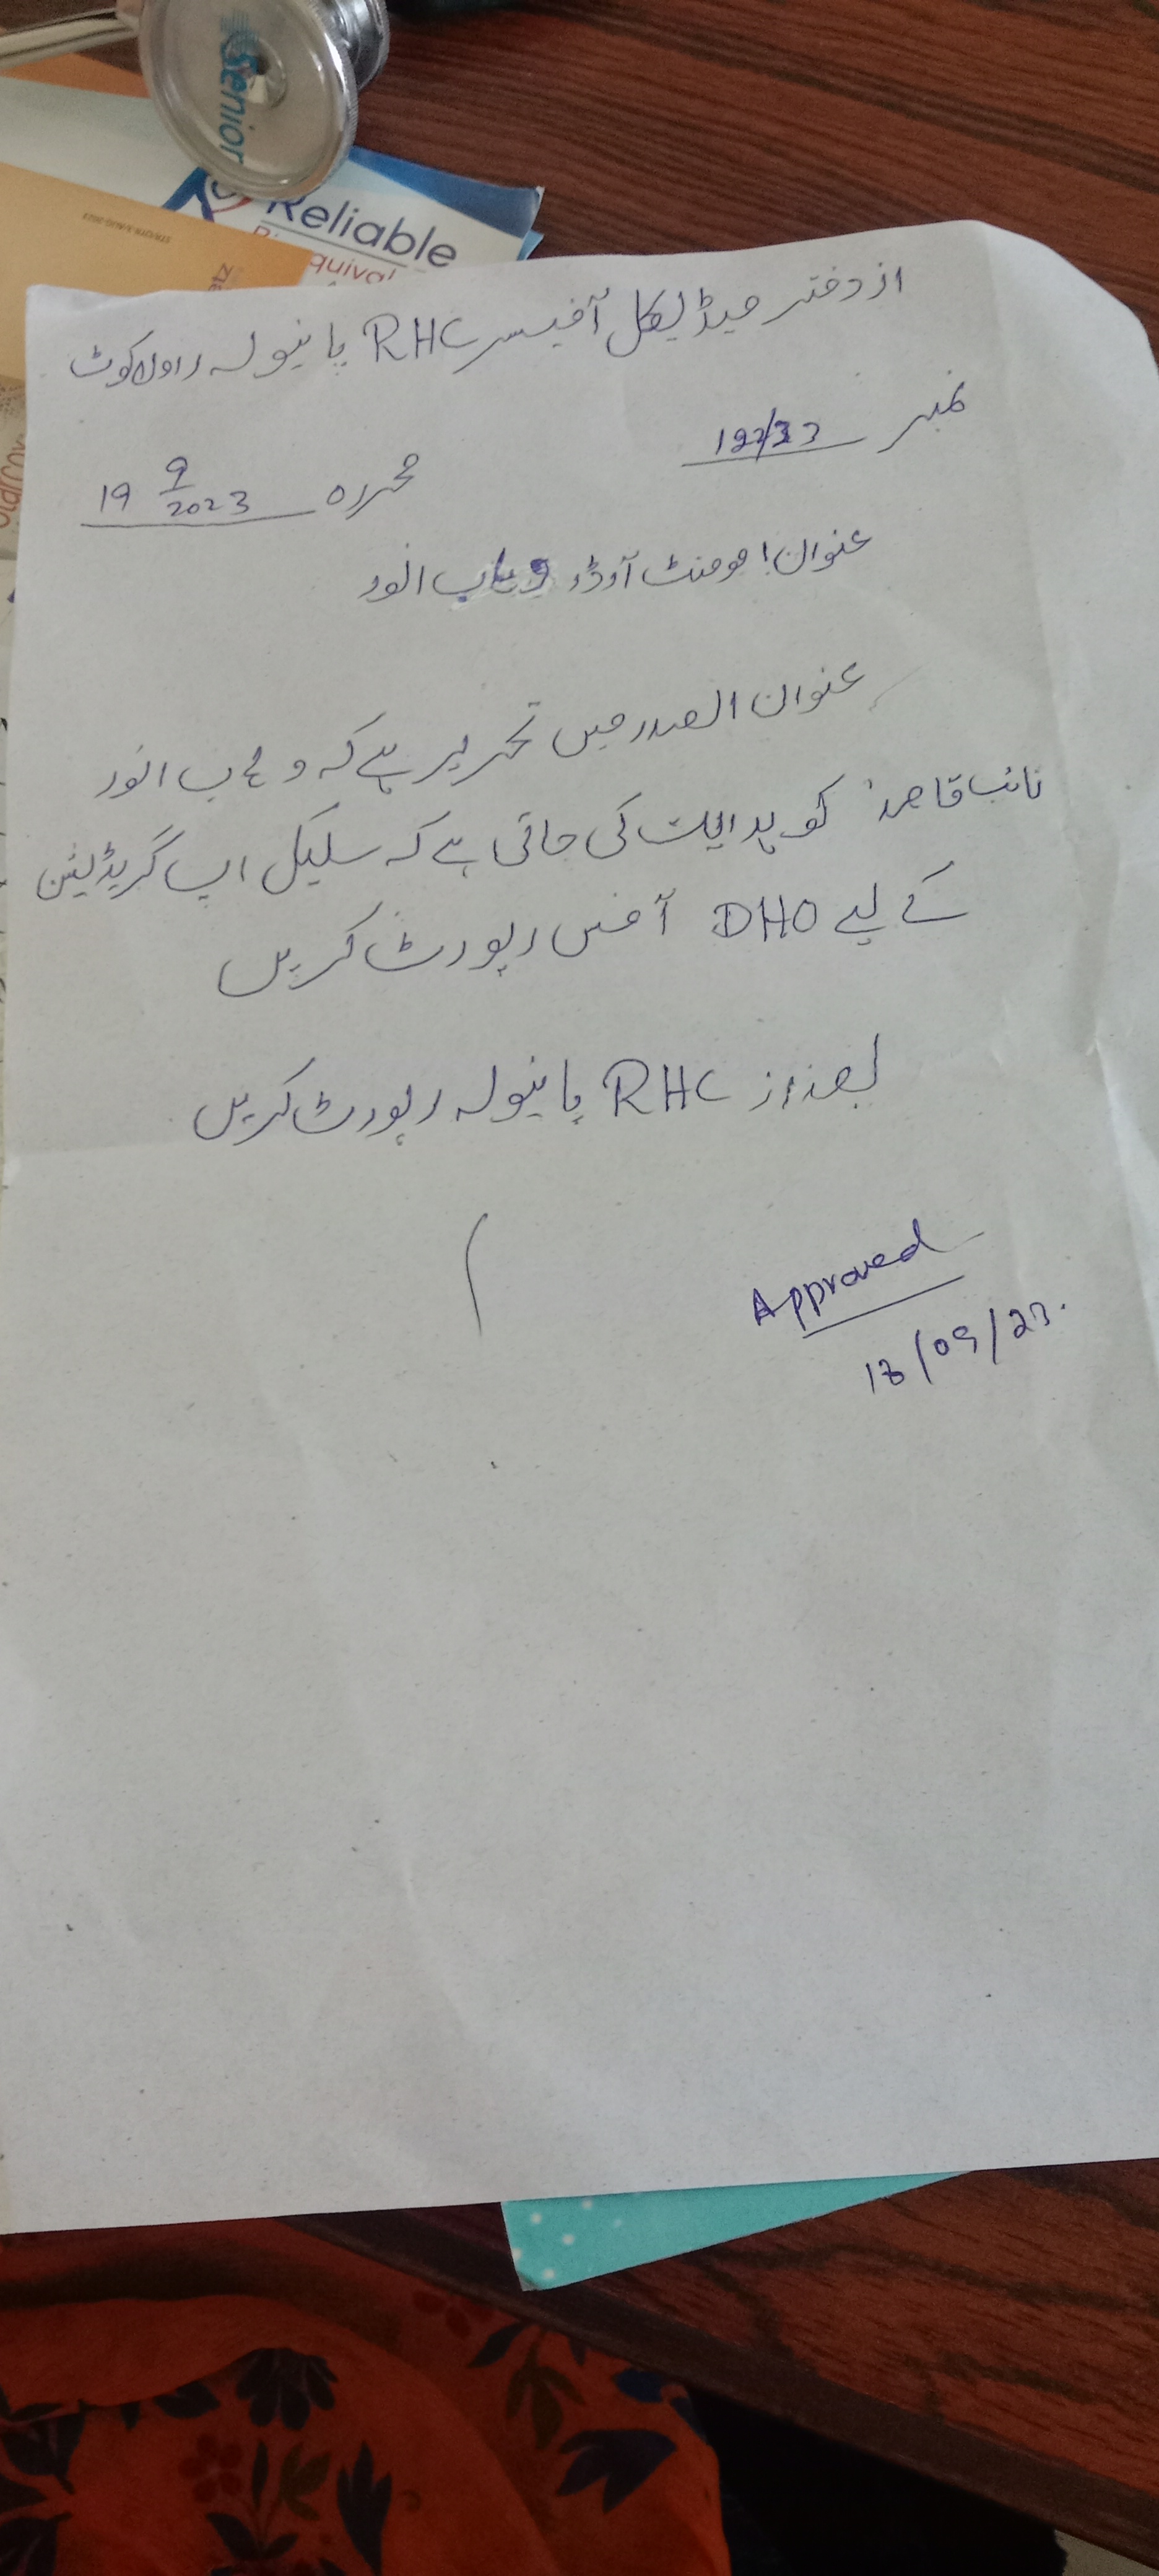 Senior
Reliable
از دفتر میڈیکل آفیسر RHC پانیولہ راولاکوٹ
نمبر 192/23
محررہ 19 9/2023
عنوان! مومنٹ آرڈر وہاب انور
عنوان الصدر میں تحریر ہے کہ وہاب انور
نائب قاصد کو ہدایت کی جاتی ہے کہ سکیل اپ گریڈیشن
کے لیے DHO آفس رپورٹ کریں
بعد از RHC پانیولہ رپورٹ کریں
Approved
18/09/23.